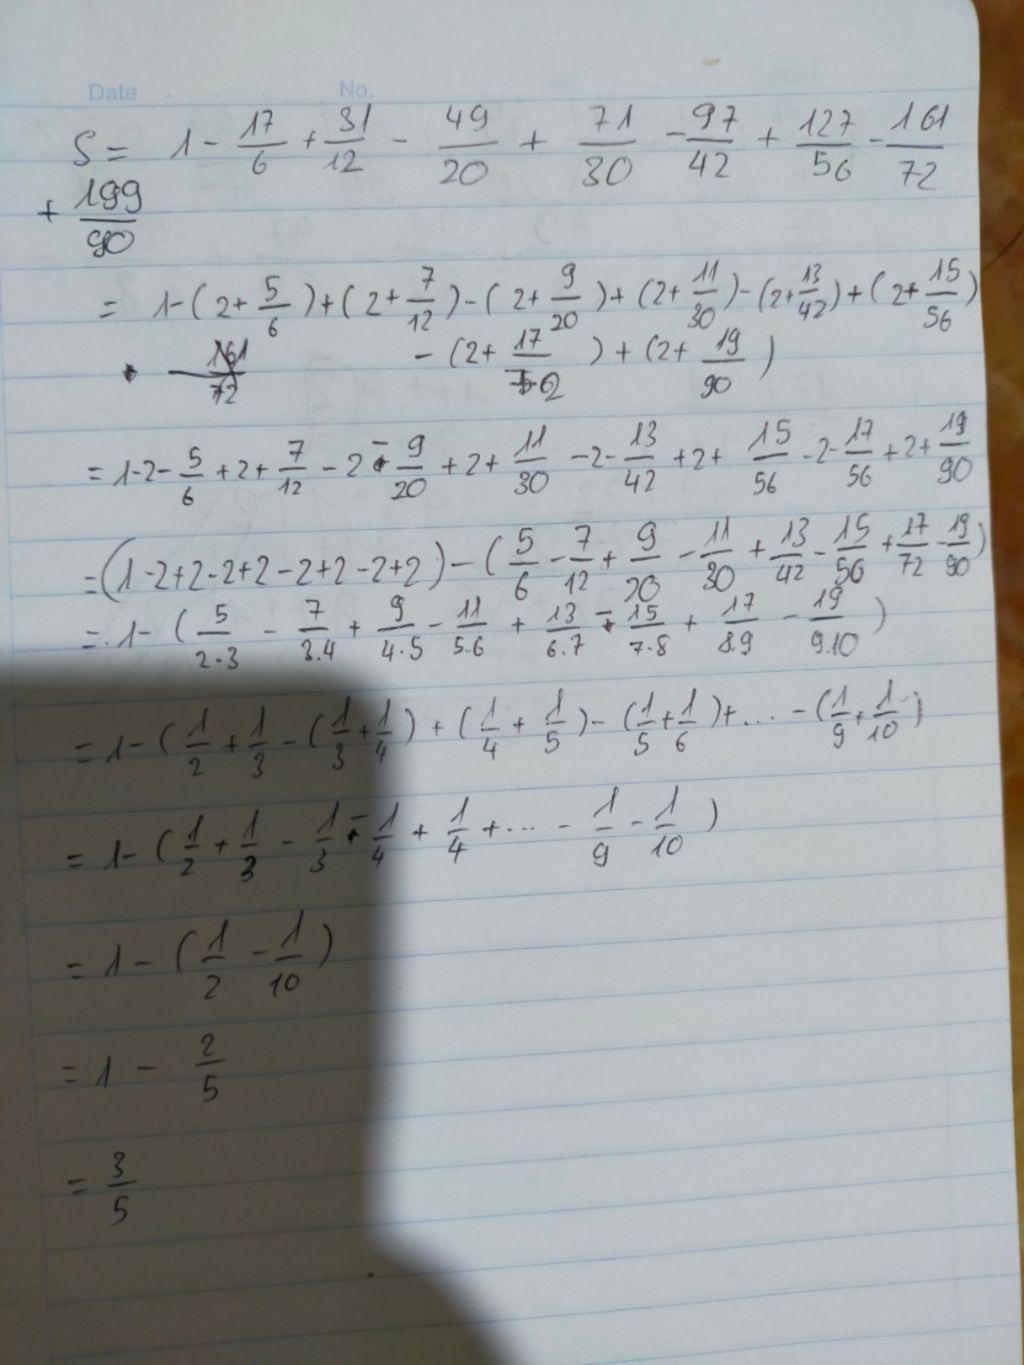 Date No.
S = 1 - 17/6 + 31/12 - 49/20 + 71/30 - 97/42 + 127/56 - 161/72
+ 199/90
= 1 - (2 + 5/6) + (2 + 7/12) - (2 + 9/20) + (2 + 11/30) - (2 + 13/42) + (2 + 15/56)
- (2 + 17/72) + (2 + 19/90)
= 1 - 2 - 5/6 + 2 + 7/12 - 2 - 9/20 + 2 + 11/30 - 2 - 13/42 + 2 + 15/56 - 2 - 17/56 + 2 + 19/90
= (1 - 2 + 2 - 2 + 2 - 2 + 2 - 2 + 2) - (5/6 - 7/12 + 9/20 - 11/30 + 13/42 - 15/56 + 17/72 - 19/90)
= 1 - (5/2.3 - 7/3.4 + 9/4.5 - 11/5.6 + 13/6.7 - 15/7.8 + 17/8.9 - 19/9.10)
= 1 - (1/2 + 1/3 - (1/3 + 1/4) + (1/4 + 1/5) - (1/5 + 1/6) + ... - (1/9 + 1/10)
= 1 - (1/2 + 1/3 - 1/3 - 1/4 + 1/4 + ... - 1/9 - 1/10)
= 1 - (1/2 - 1/10)
= 1 - 2/5
= 3/5